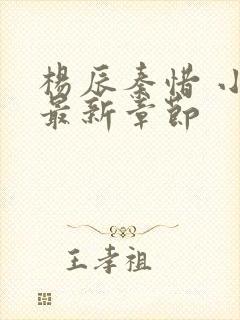 楊辰秦惜 小
最新章節
王孝祖